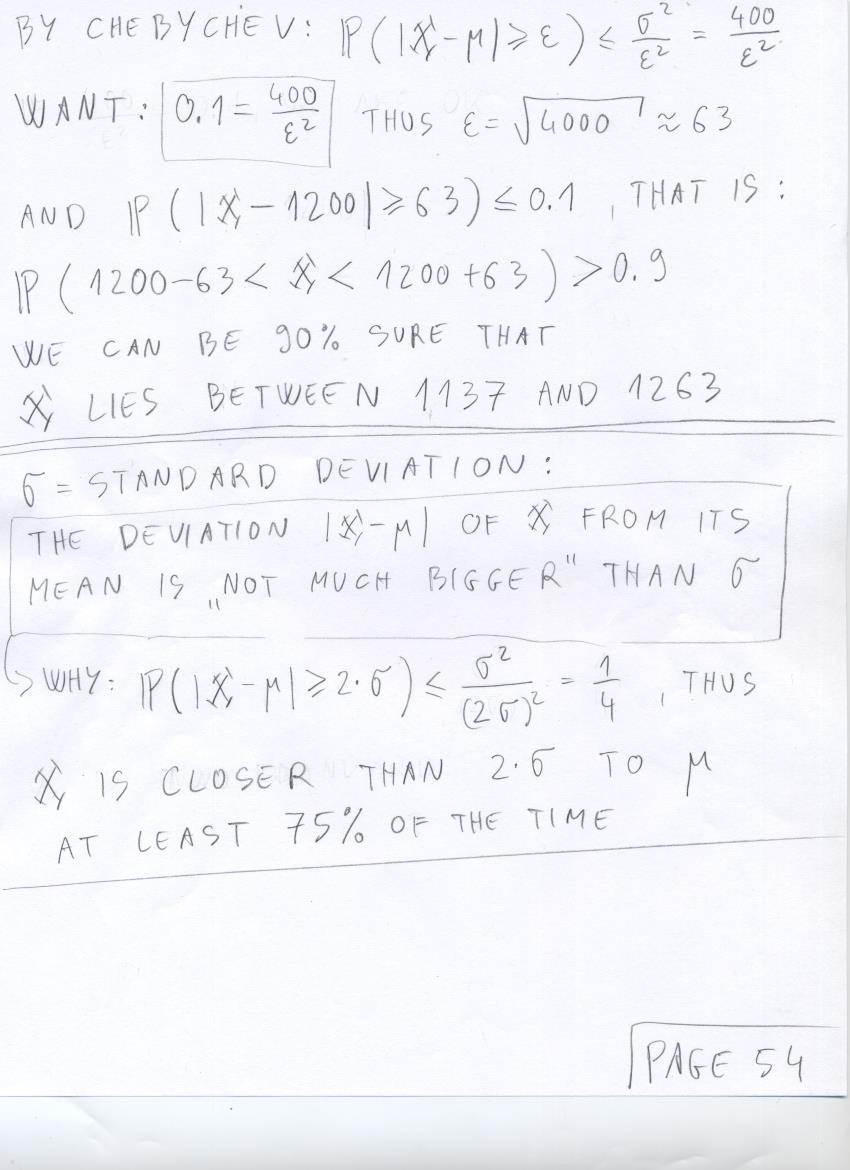 BY CHEBYCHEV: ℙ(|X-μ|≥ε) ≤ σ²/ε² = 400/ε²
WANT: 0.1 = 400/ε² THUS ε = √4000 ≈ 63
AND ℙ(|X-1200|≥63) ≤ 0.1, THAT IS:
ℙ(1200-63 < X < 1200+63) > 0.9
WE CAN BE 90% SURE THAT
X LIES BETWEEN 1137 AND 1263
σ = STANDARD DEVIATION:
THE DEVIATION |X-μ| OF X FROM ITS
MEAN IS „NOT MUCH BIGGER" THAN σ
↳ WHY: ℙ(|X-μ| ≥ 2·σ) ≤ σ²/(2σ)² = 1/4, THUS
X IS CLOSER THAN 2·σ TO μ
AT LEAST 75% OF THE TIME
PAGE 54